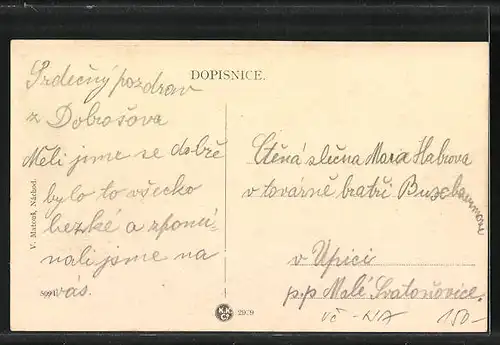 DOPISNICE.
Srdečný pozdrav
z Dobrošova
Měli jsme se dobře
bylo to všecko
hezké a zpomí-
nali jsme na
vás.
Ctěná slečna Mara Habrova
v továrně bratří
v Úpici
p.p Malé Svatoňovice.
vč - NA 150-
V. Matouš, Náchod.
2979